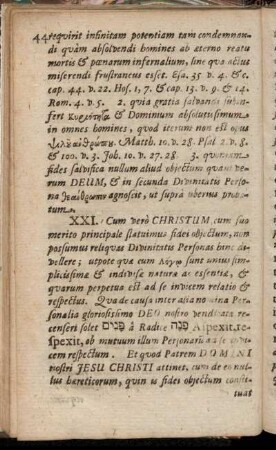 44 requirit infinitam potentiam tam condemnan-
di quàm absolvendi homines ab æterno reatu
mortis & pœnarum infernalium, sine qua actus
miserendi frustraneus esset. Esa. 35. v. 4. & c.
cap. 44. v. 22. Hos. 1, 7. & cap. 13. v. 9. & 14.
Rom. 4. v. 5. 2. quia gratia salvandi
fert & Dominium absolutissimum
in omnes homines, quod iterum non est opus
Matth. 10. v. 28. Psal. 2. v. 8.
& 100. v. 3. Job. 10. v. 27. 28. 3. quoniam
fides salvifica nullum aliud objectum quàm verum
DEUM, & in secunda Divinitatis Perso-
na agnoscit, ut supra oberma
tum.
XXI. Cum verò CHRISTUM cum suo
merito principale statuimus fidei objectum, non
possumus reliquas Divinitatis Personas hinc di-
vellere; utpote quæ cum λόγῳ sunt unius sim-
plicissimæ & indivisæ naturæ ac essentiæ, &
quarum perpetua est ad se invicem relatio &
respectus. Qua de causa inter alia nomina Perso-
nalia gloriosissimo DEO nostro vendicata re-
censeri solet פָּנִים à Radice פָּנָה Aspexit, re-
spexit, ob mutuum illum Personarum ad se invi-
cem respectum. Et quod Patrem DOMINI
nostri JESU CHRISTI attinet, cum de eo nul-
lus hæreticorum, quin is fides objectum consti-
tuat